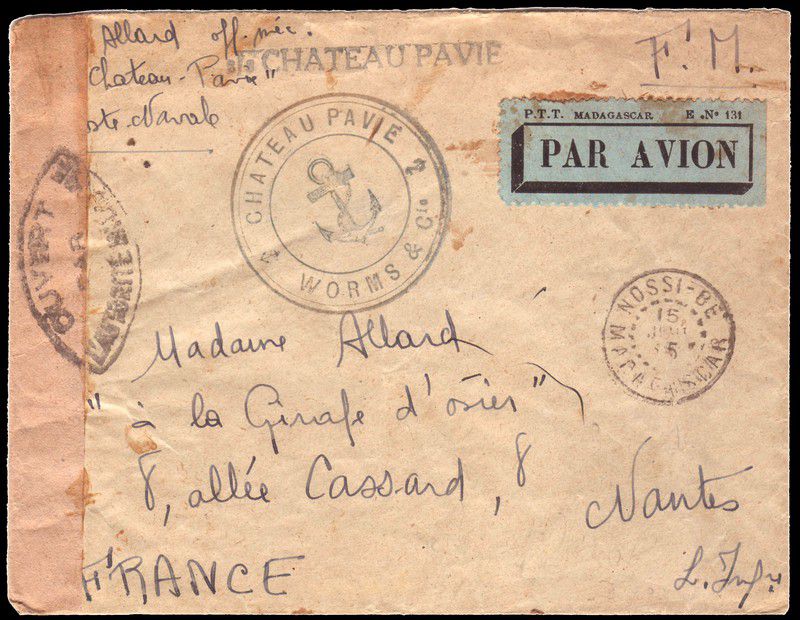 Allard off. méc.
S/S CHATEAU PAVIE
F.M.
"Chateau-Pavie"
Poste-Navale
P.T.T. MADAGASCAR E .Nº 131
PAR AVION
CHATEAU PAVIE
WORMS & Cie
OUVERT
PAR
L'AUTORITÉ MILITAIRE
NOSSI-BE
15
MADAGASCAR
Madame Allard
"à la Girafe d'osier"
8, allée Cassard, 8
Nantes
FRANCE
L. Infre